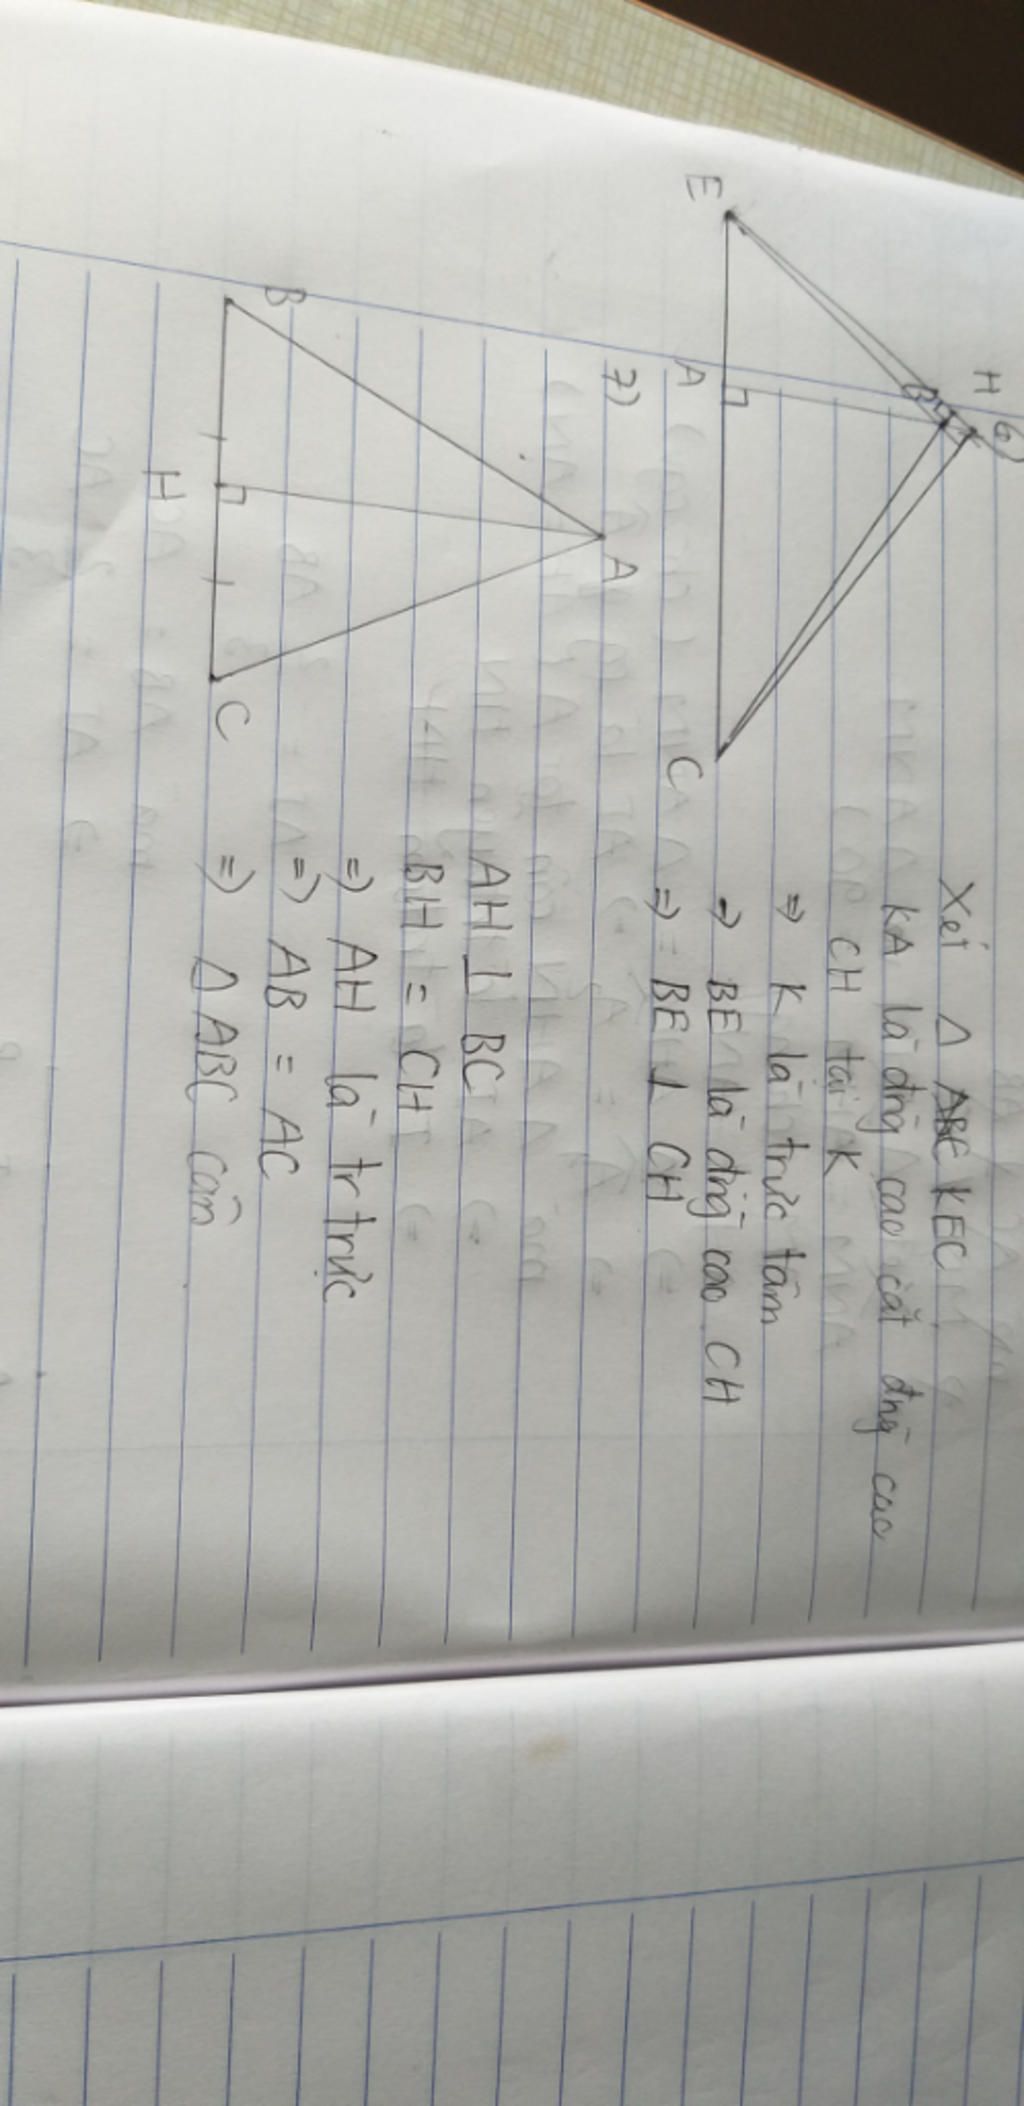 6)
H
E
A
C
Xét Δ ABC KEC
KA là đng cao cắt đng cao
CH tại K
=> K là trực tâm
=> BE là đng cao CH
=> BE ⊥ CH
7)
A
B
H
C
AH ⊥ BC
BH = CH
=> AH là tr trực
=> AB = AC
=> Δ ABC cân